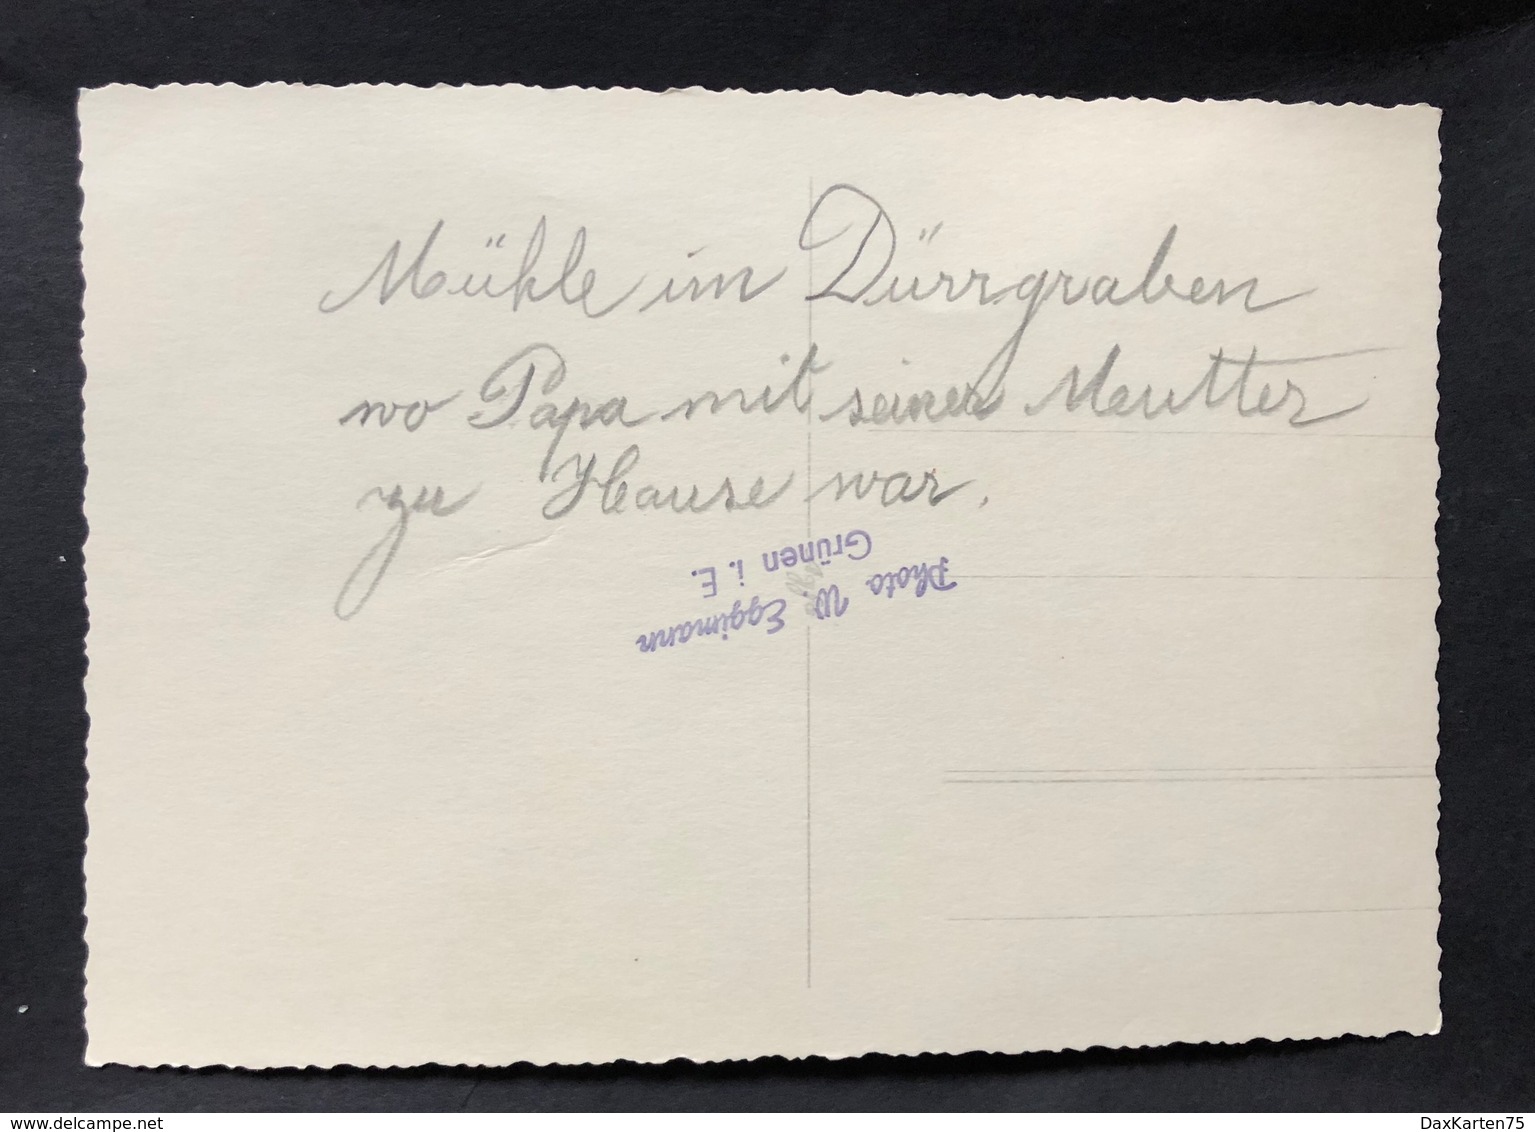 Mühle im Dürrgraben
wo Papa mit seiner Meutter
zu Hause war.
Photo W Eggimann
Grünen i. E.
delcampe.net
DaxKarten75